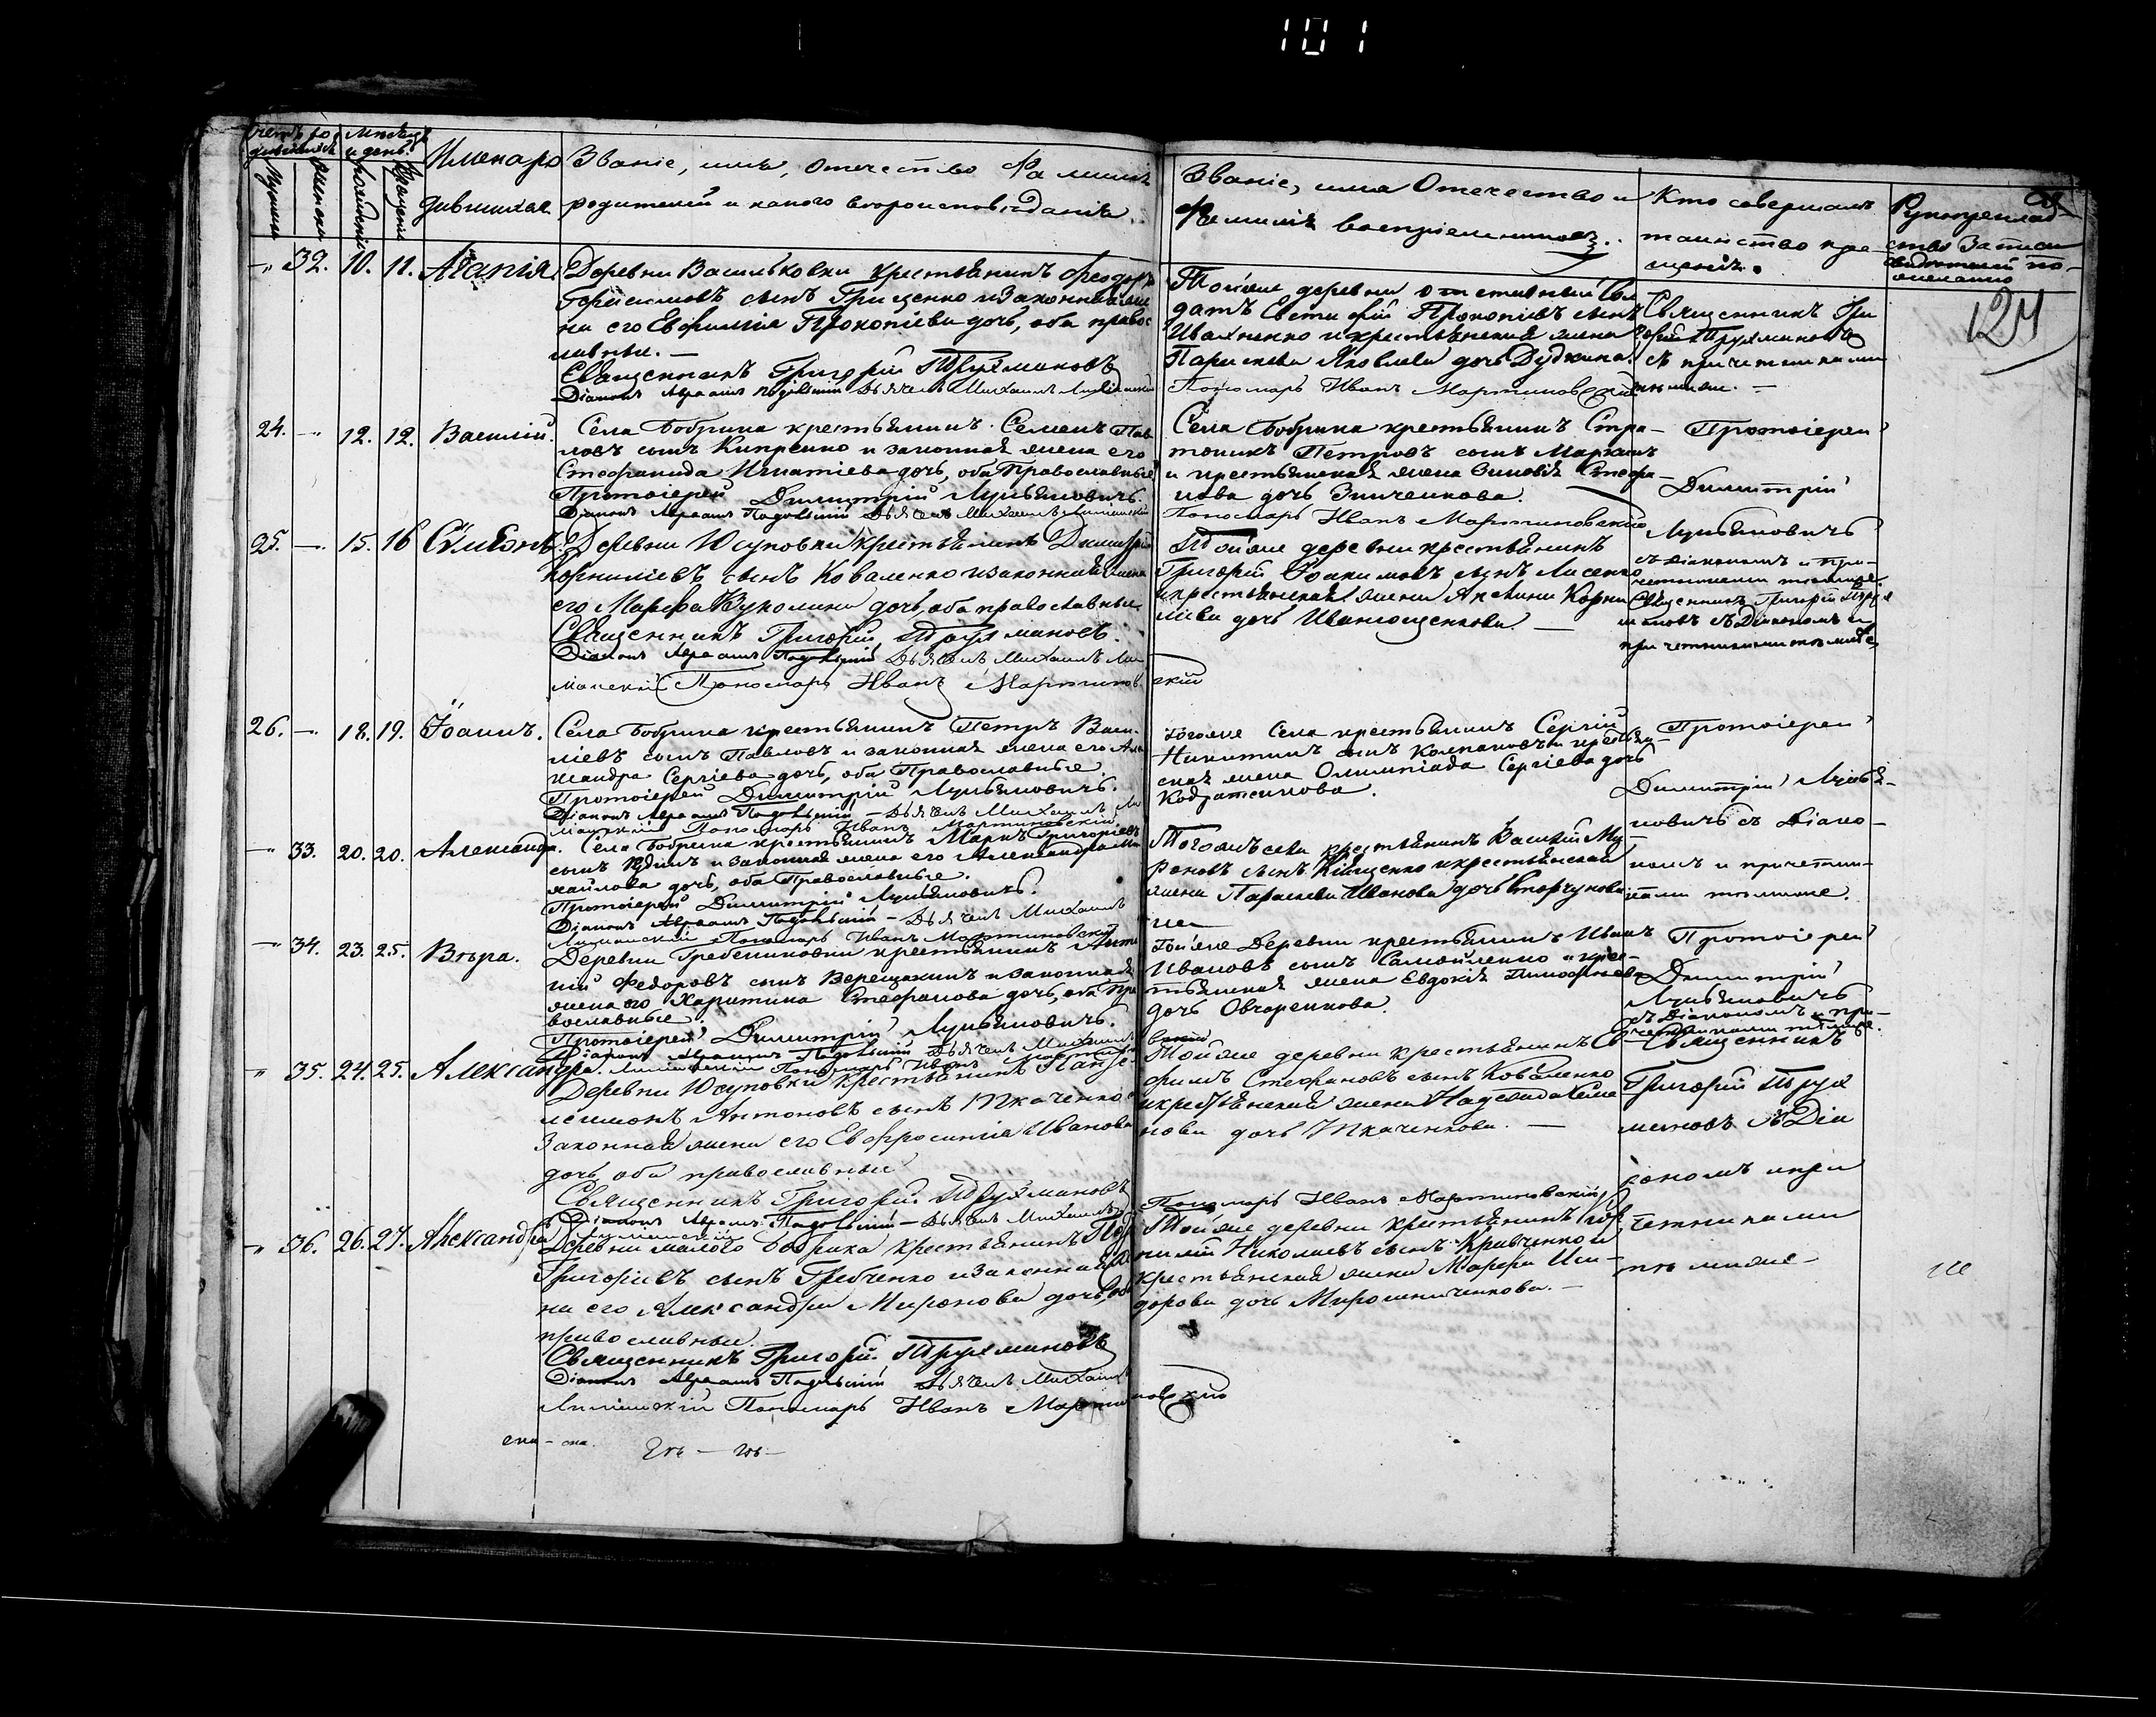 101
Счетъ ро
дившихся
Мѣсяцъ
и день
Мужеска
Женска
Рожденія
Крещенія
Имена ро
дившихся
Званіе, имя, Отечество Фамилія
родителей и какого вероисповѣданія.
Званіе, имя Отечество и
Фамилія воспріемниковъ.
Кто совершалъ
таинство кре-
щенія.
Рукоприклад-
ство
свидѣтелей по
желанію
124
32. 10. 11. Агапія.
Деревни Васильковки крестьянинъ Феодоръ
сынъ Грищенко и законная же
на его Евфимія Прокопіева дочь, оба правос
лавные. —
Священникъ Григорій Трухмановъ
Діаконъ Авраамъ Подольскій Дьячекъ Михаилъ
Той же деревни отставный Сол
датъ Прокопіевъ сынъ
Ивахненко и крестьянская жена
Параскева Яковлева дочь Дудкина.
Пономарь Иванъ Мартиновскій
Священникъ Гри
горій Трухмановъ
съ причетниками
24. — 12. 12. Василій.
Села Бобрика крестьянинъ Семенъ Пав
ловъ сынъ Кипренко и законная жена его
Стефанида Игнатіева дочь, оба Православные
Протоіерей Димитрій Лукьяновичъ.
Діаконъ Авраамъ Подольскій Дьячекъ Михаилъ
Села Бобрика крестьянинъ Стра-
тоникъ Петровъ сынъ
и крестьянская жена Зиновія Стефа-
нова дочь Зинченкова.
Пономарь Иванъ Мартиновскій
Протоіерей
Димитрій
Лукьяновичъ
съ Діакономъ и при-
четниками
25. — 15. 16 Симеонъ.
Деревни Юсуповки крестьянинъ Димитрій
Корниліевъ сынъ Коваленко и законная жена
его Марфа дочь, оба православные.
Священникъ Григорій Трухмановъ.
Діаконъ Авраамъ Подольскій Дьячекъ Михаилъ
Пономарь Иванъ Мартинов
скій
Той же деревни крестьянинъ
Григорій Іоакимовъ сынъ Лисенко
и крестьянская жена Корни
ліева дочь Иванющенкова. —
Священникъ Григорій Трух
мановъ съ Діакономъ и
причетниками
26. — 18. 19. Іоаннъ.
Села Бобрика крестьянинъ Петръ Васи-
ліевъ сынъ Павловъ и законная жена его Але
ксандра Сергіева дочь, оба Православные.
Протоіерей Димитрій Лукьяновичъ.
Діаконъ Авраамъ Подольскій — Дьячекъ Михаилъ
Пономарь Иванъ Мартиновскій
Тогоже Села крестьянинъ Сергій
Никитинъ сынъ Колпаковъ и крестьян
ская жена Олимпіада Сергіева дочь
Кодратенкова.
Протоіерей
Димитрій Лукья-
новичъ съ Діако-
номъ и причетни-
ками тѣмиже.
33. 20. 20. Александра.
Села Бобрика крестьянинъ Маркъ Григорьевъ
сынъ и законная жена его Александра Ми
хайлова дочь, оба Православные.
Протоіерей Димитрій Лукьяновичъ.
Діаконъ Авраамъ Подольскій — Дьячекъ Михаилъ
Пономарь Иванъ Мартиновскій
Тогожъ села крестьянинъ Василій Ми
роновъ сынъ и крестьянская
жена Параскева Иванова дочь Сторчунова
34. 23. 25. Вѣра.
Деревни Гребениковки крестьянинъ
Федоровъ сынъ Верещакинъ и законная
жена его Харитина Стефанова дочь, оба Пра
вославные.
Протоіерей Димитрій Лукьяновичъ.
Діаконъ Авраамъ Подольскій Дьячекъ Михаилъ
Пономарь Иванъ
Тойже Деревни крестьянинъ Иванъ
Ивановъ сынъ Самойленко и крес-
тьянская жена Евдокія Тимофеева
дочь Овчаренкова.
Протоіерей
Димитрій
Лукьяновичъ
съ Діакономъ и при-
четниками тѣмиже.
35. 24. 25. Александра.
Деревни Юсуповки крестьянинъ Панте
леимонъ Антоновъ сынъ Ткаченко и
законная жена его Евфросинія Иванова
дочь, оба православные
Священникъ Григорій Трухмановъ
Діаконъ Авраамъ Подольскій — Дьячекъ Михаилъ
Той же деревни крестьянинъ
Стефановъ сынъ Коваленко
и крестьянская жена Надежда Семе
нова дочь Ткаченкова. —
Пономарь Иванъ Мартиновскій
Священникъ
Григорій Трух
мановъ съ Діа
кономъ и при
четниками
тѣмиже
36. 26. 27. Александра
Деревни малого Бобрика крестьянинъ
Григоріевъ сынъ Гребченко и законная же
на его Александра Миронова дочь, оба
православные.
Священникъ Григорій Трухмановъ
Діаконъ Авраамъ Подольскій Дьячекъ Михаилъ
Пономарь Иванъ Мартиновскій
Той же деревни крестьянинъ Кор
нилій Николаевъ сынъ Кравченко и
крестьянская жена Марфа Иси-
дорова дочь Мирошниченкова. —